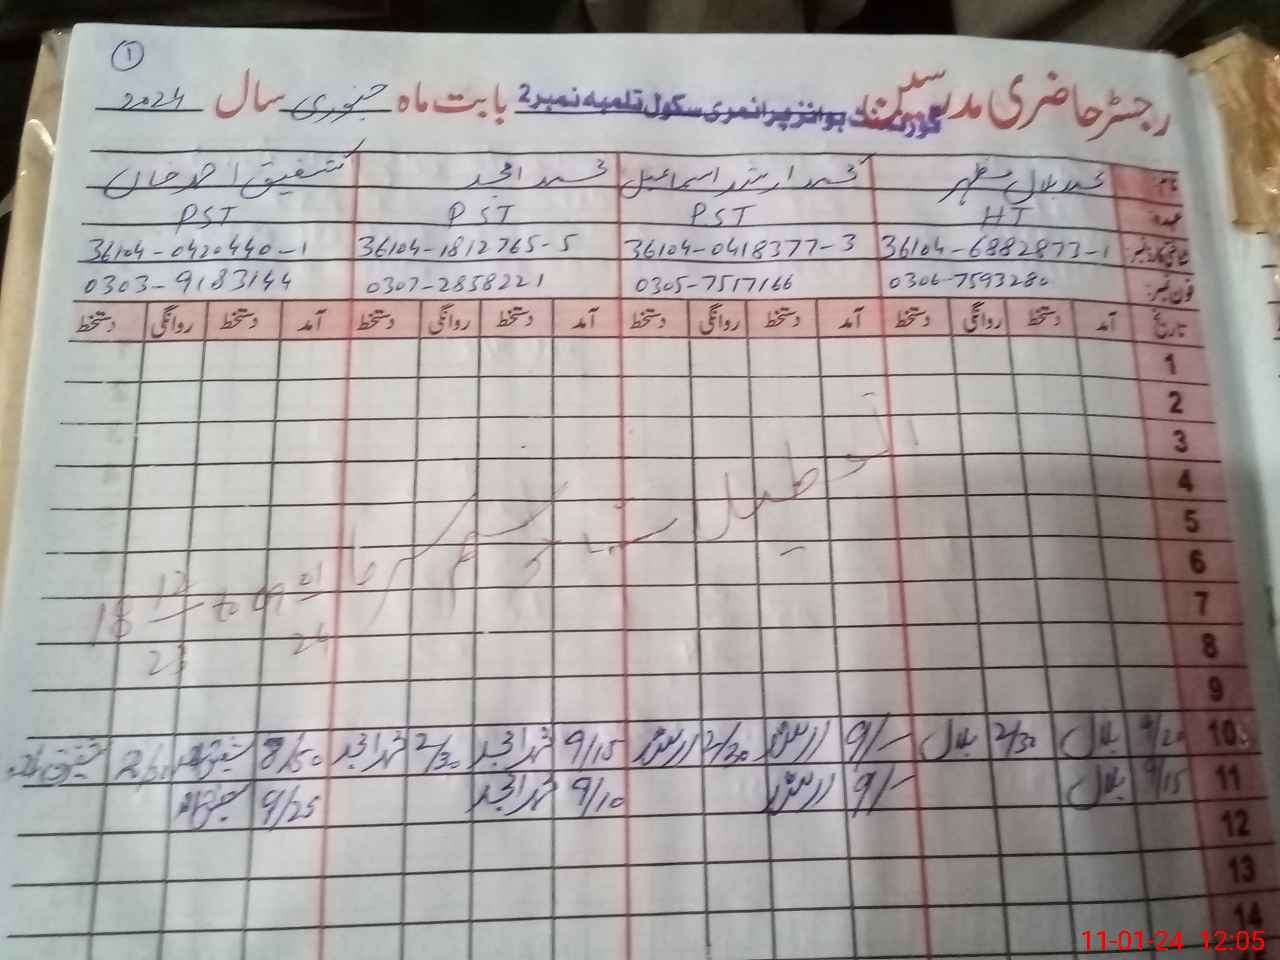 1
رجسٹر حاضری مدرسین گورنمنٹ بوائز پرائمری سکول تلمبہ نمبر 2 بابت ماہ جنوری سال 2024
نام: محمد بلال مظہر محمد ارشد اسماعیل محمد امجد شفیق احمد خان
عہدہ: HT PST PST PST
شناختی کارڈ نمبر: 36104-6882873-1 36104-0418377-3 36104-1812765-5 36104-0420440-1
فون نمبر: 0306-7593280 0305-7517166 0307-2858221 0303-9183144
تاریخ آمد دستخط روانگی دستخط آمد دستخط روانگی دستخط آمد دستخط روانگی دستخط آمد دستخط روانگی دستخط
1
2
3
4
5
6
7
8
9
10 بلال 2/30 بلال 9/- ارشد 2/30 ارشد 9/15 محمد امجد 2/30 محمد امجد 8/50 شفیق
11 9/15 بلال 9/- ارشد 9/10 محمد امجد 9/25
12
13
14
11-01-24 12:05